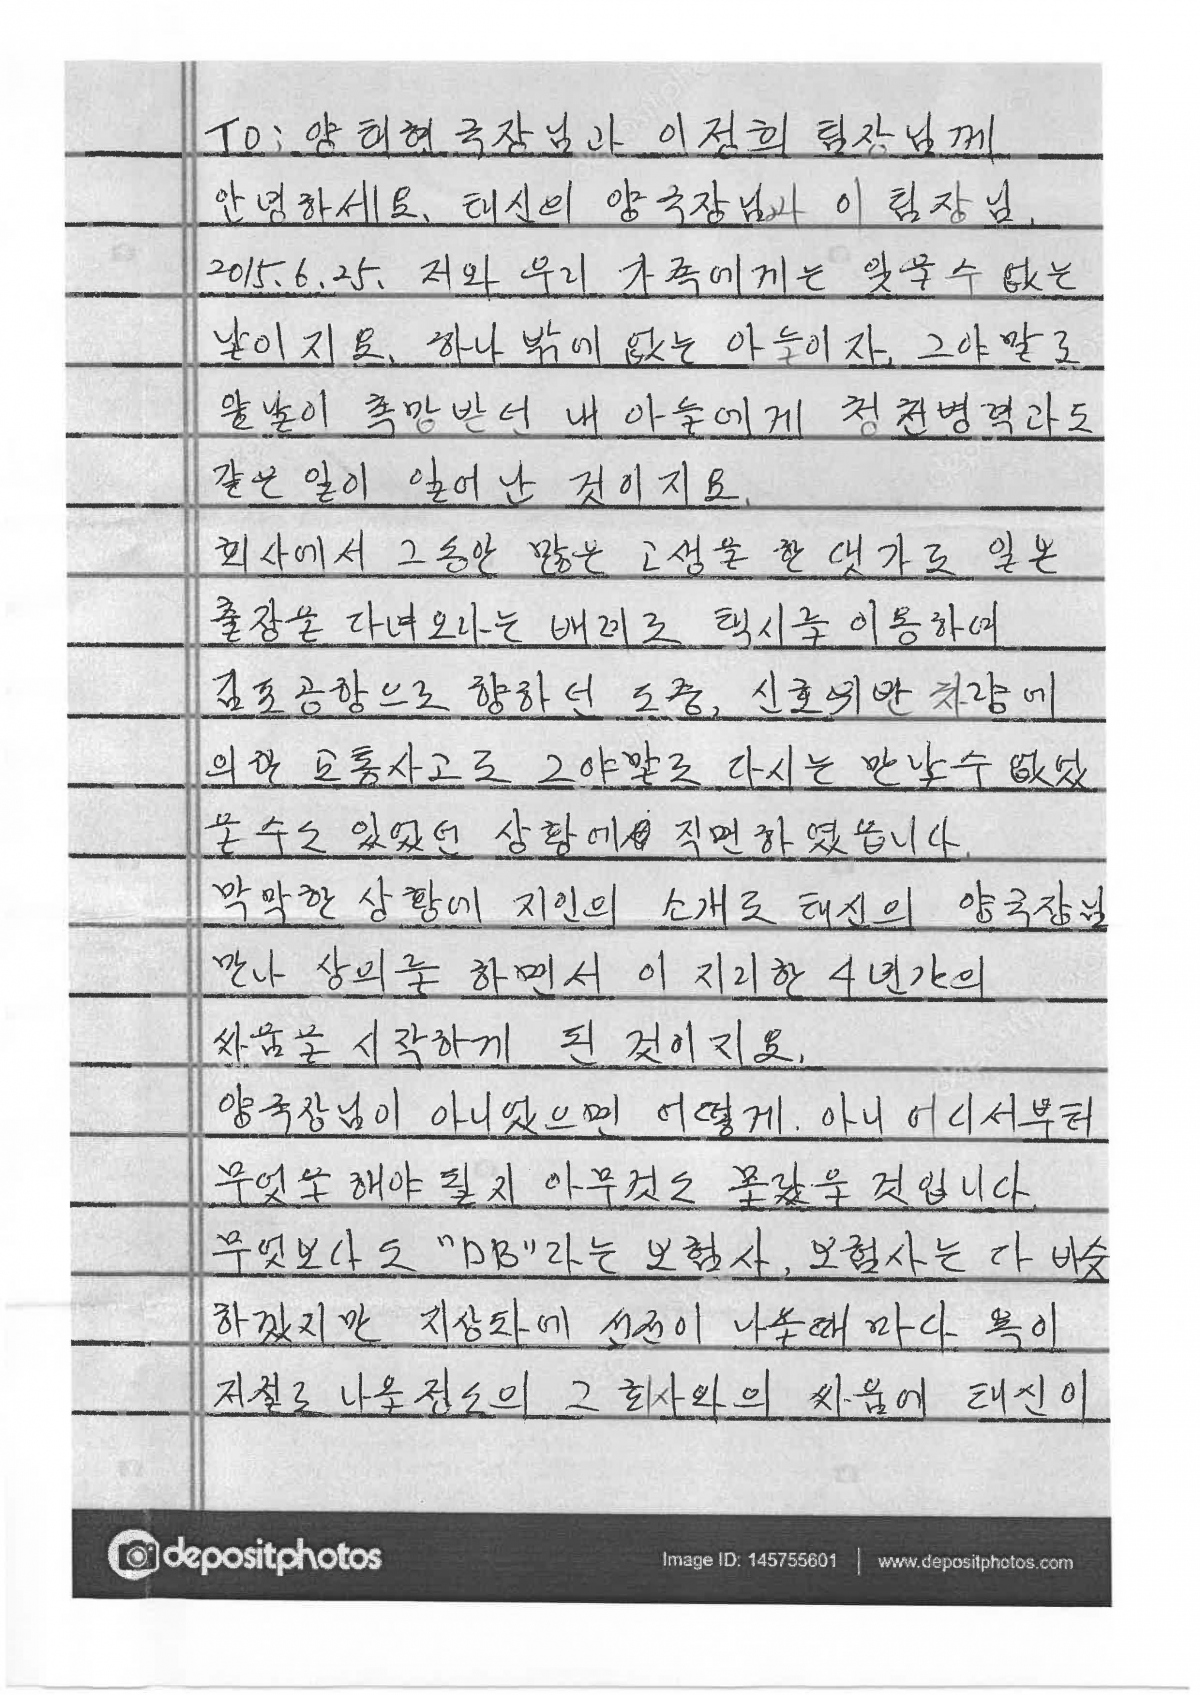 TO: 양희현 국장님과 이전희 팀장님께
안녕하세요. 태신의 양국장님과 이 팀장님.
2015.6.25. 저와 우리 가족에게는 잊을수 없는
날이지요. 하나 밖에 없는 아들이자, 그야말로
앞날이 촉망받던 내 아들에게 청천병력과도
같은 일이 일어난 것이지요.
회사에서 그동안 많은 고생을 한 댓가로 일본
출장을 다녀오라는 배려로 택시를 이용하여
김포공항으로 향하던 도중, 신호위반 차량에
의한 교통사고로 그야말로 다시는 만날수 없었
을수도 있었던 상황에 직면하였읍니다.
막막한 상황에 지인의 소개로 태신의 양국장님
만나 상의를 하면서 이 지리한 4년간의
싸움을 시작하게 된 것이지요.
양국장님이 아니었으면 어떻게. 아니 어디서부터
무엇을 해야 될지 아무것도 몰랐을 것입니다.
무엇보다도 "DB"라는 보험사, 보험사는 다 비슷
하겠지만 지상파에 선전이 나올때 마다 욕이
저절로 나올 정도의 그 회사와의 싸움에 태신이
depositphotos
Image ID: 145755601 | www.depositphotos.com